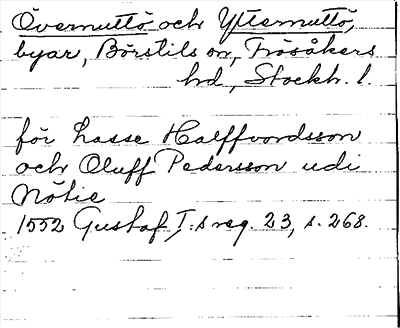 Övernuttö och Ytternuttö,
byar, Börstils sn, Frösåkers
hd, Stockh. l.
för Lasse Halffvordsson
och Oluff Pedersson udi
Nötie
1552 Gustaf I:s reg. 23, s. 268.